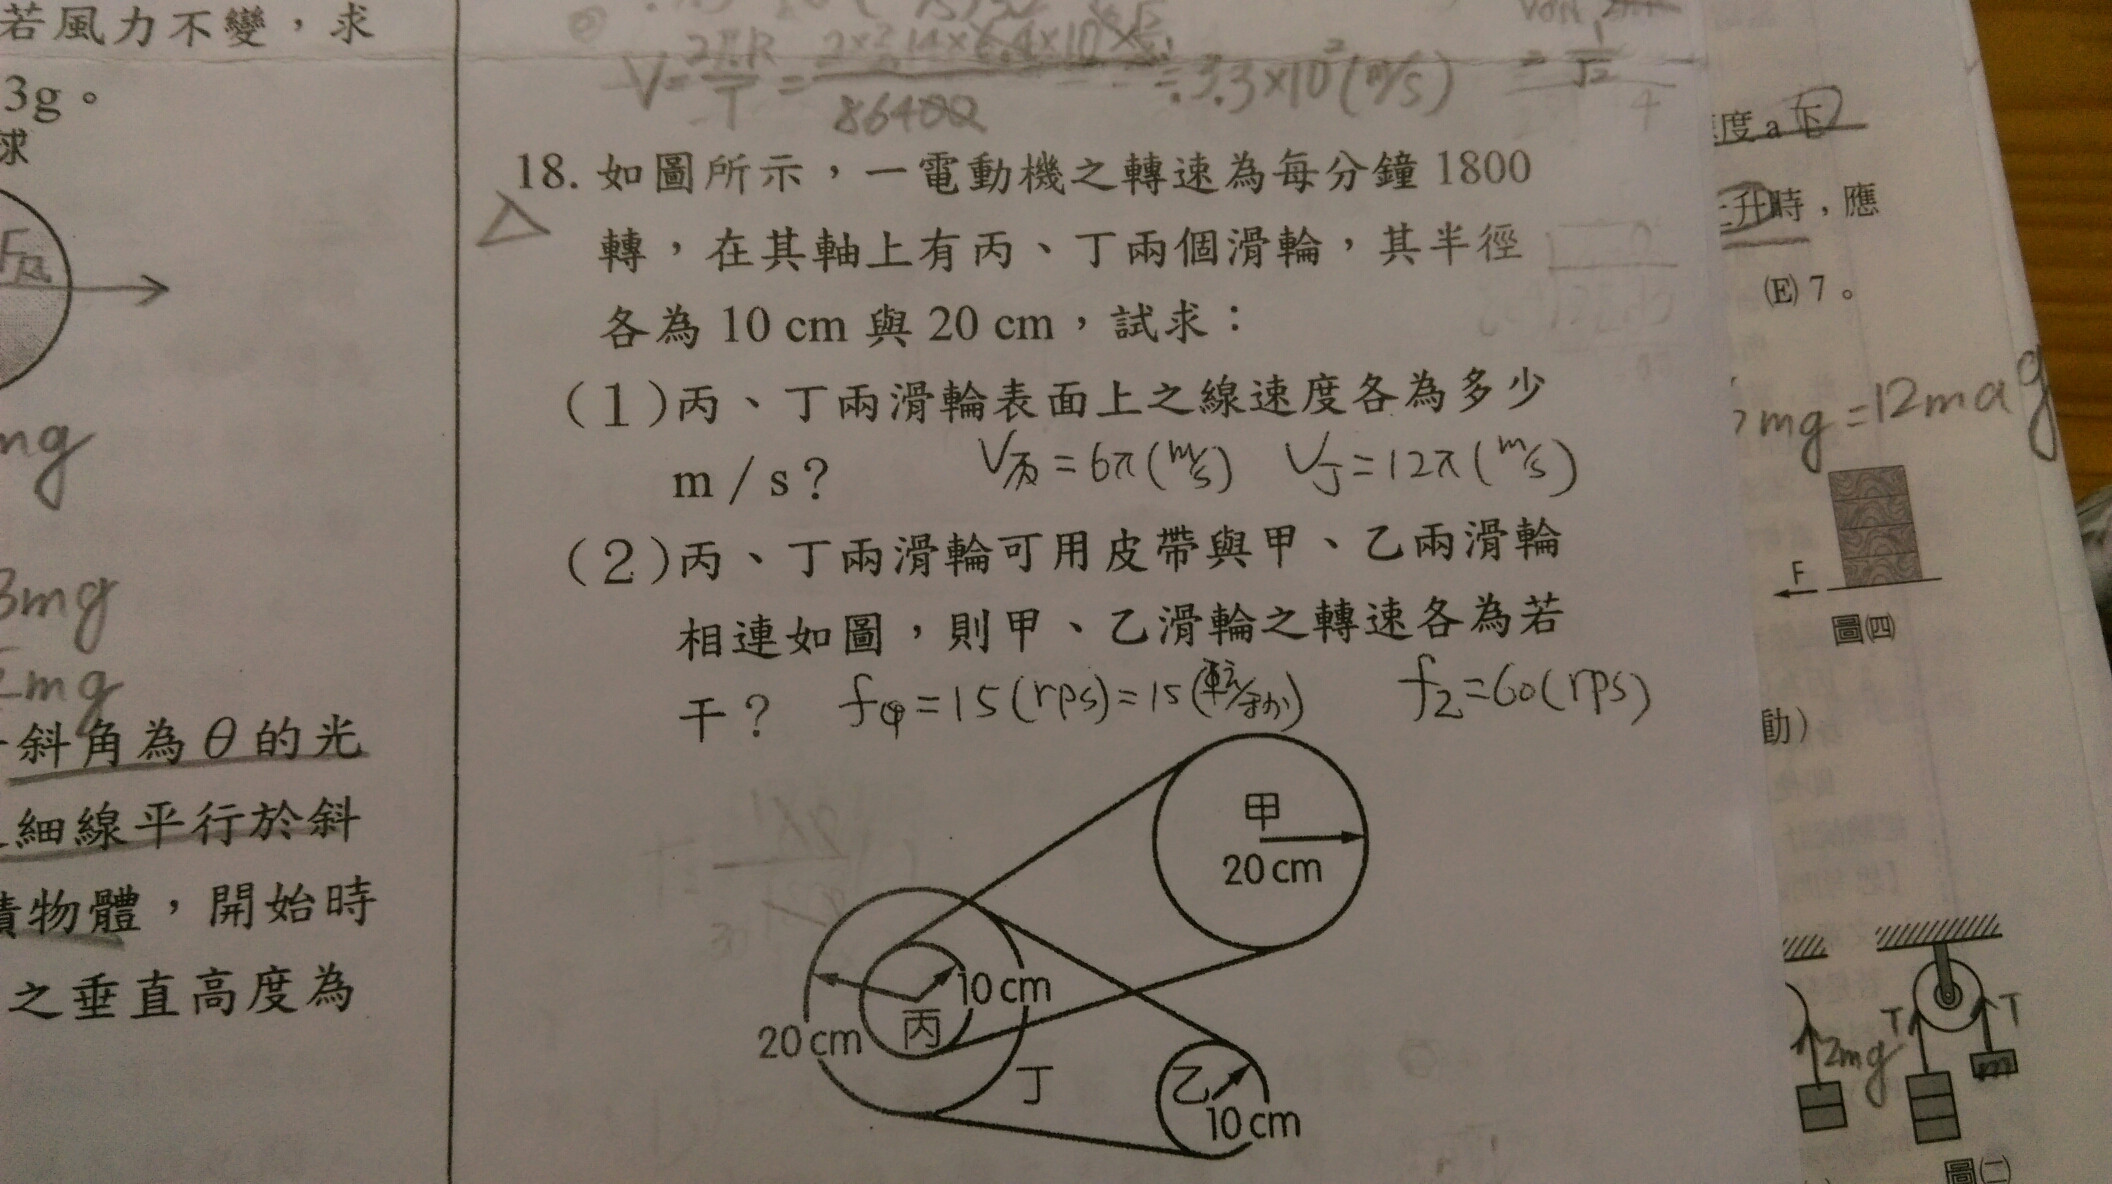 若風力不變，求
3g。
求
mg
3mg
mg
斜角為θ的光
細線平行於斜
物體，開始時
之垂直高度為
V=2πR/T=2×3.14×6.4×10/86400≒3.3×10²(m/s)
=1/√2
18. 如圖所示，一電動機之轉速為每分鐘 1800
轉，在其軸上有丙、丁兩個滑輪，其半徑
各為 10 cm 與 20 cm，試求：
(1)丙、丁兩滑輪表面上之線速度各為多少
m/s？ V丙=6π(m/s) V丁=12π(m/s)
(2)丙、丁兩滑輪可用皮帶與甲、乙兩滑輪
相連如圖，則甲、乙滑輪之轉速各為若
干？ f甲=15(rps)=15(転/秒) f乙=60(rps)
甲
20 cm
10 cm
丙
20 cm
丁
乙
10 cm
度 a 下
升時，應
(E) 7。
mg=12ma g
F
圖㈣
動)
T
T
2mg
m
圖㈡